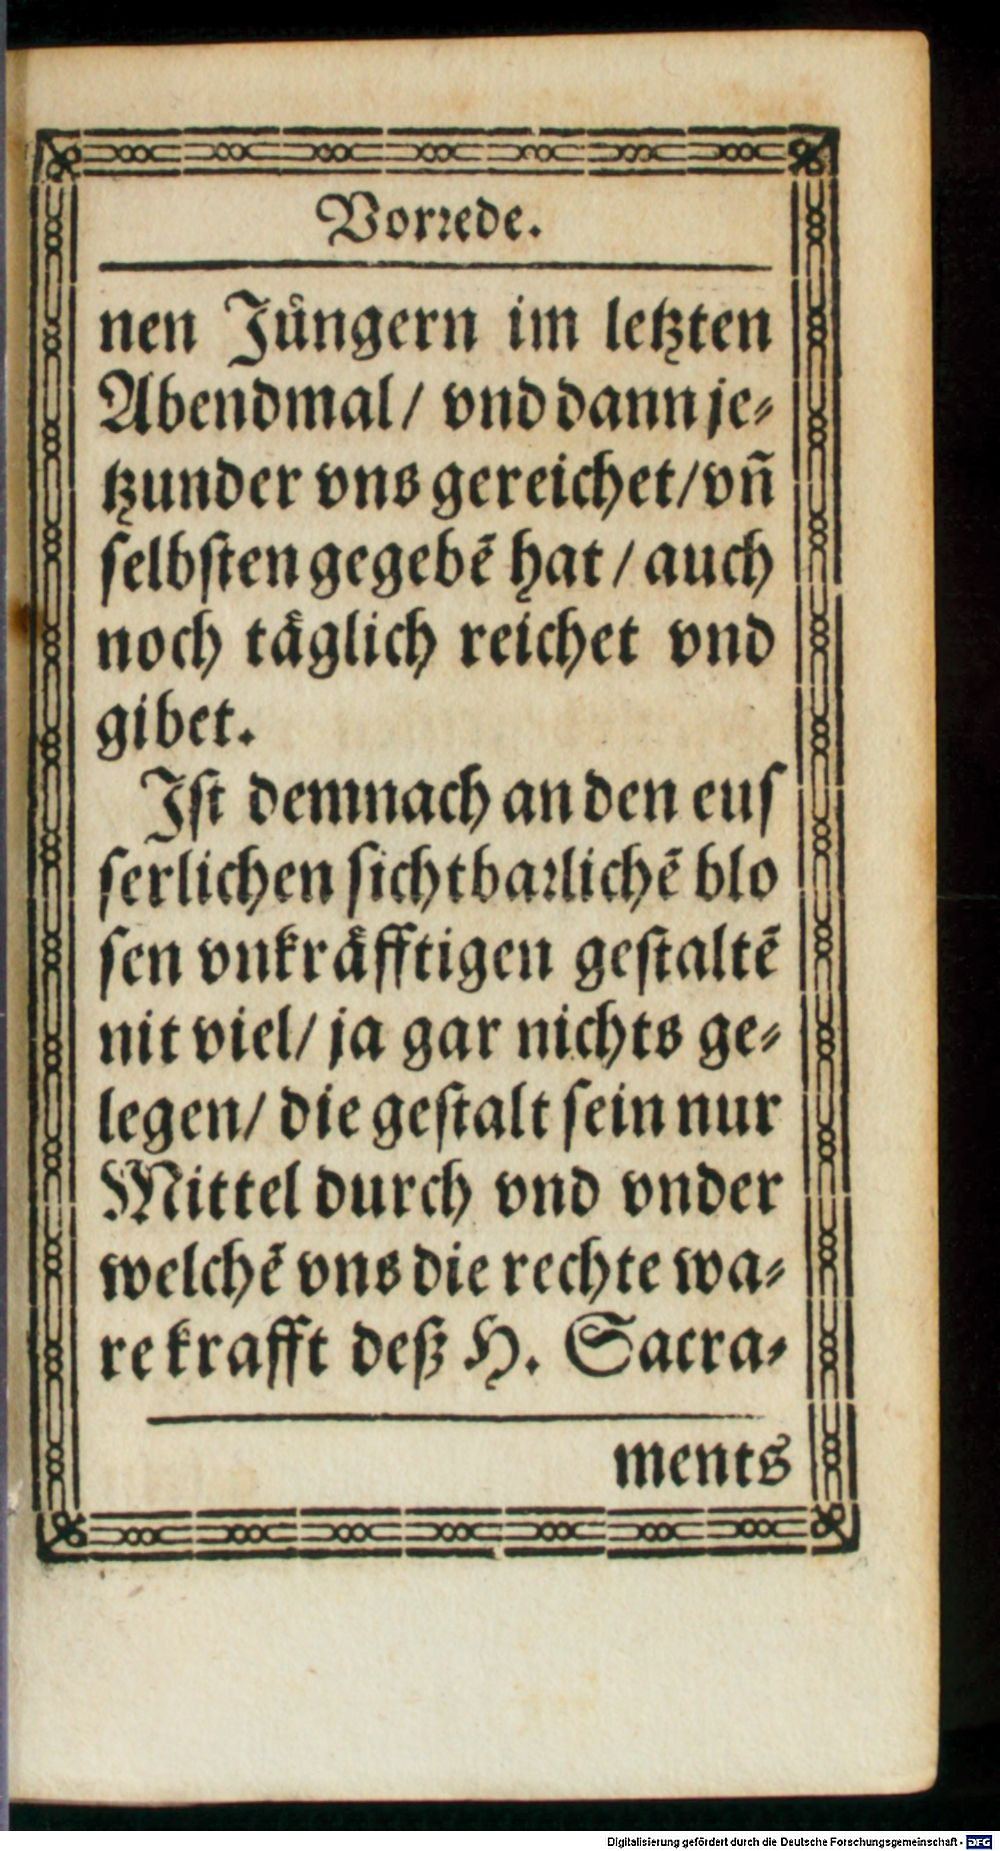 Vorꝛede.
nen Jüngern im letzten
Abendmal/ vnd dann je⸗
tzunder vns gereichet/ vn̄
ſelbſten gegebē hat / auch
noch täglich reichet vnd
gibet.
Jſt demnach an den euſ
ſerlichen ſichtbaꝛlichē blo
ſen vnkräfftigen geſtaltē
nit viel/ ja gar nichts ge⸗
legen/ die geſtalt ſein nur
Mittel durch vnd vnder
welchē vns die rechte wa⸗
re krafft deß H. Sacra⸗
ments
Digitalisierung gefördert durch die Deutsche Forschungsgemeinschaft - DFG